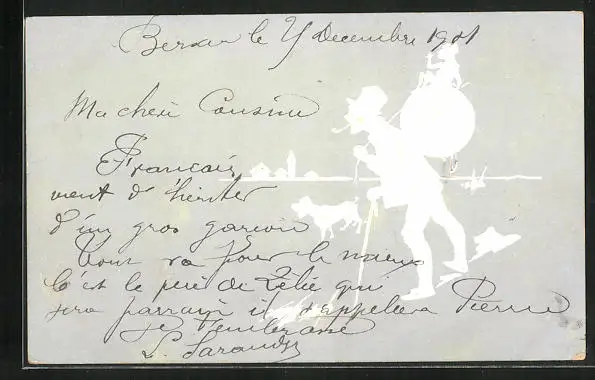 le Decembre 1901
Ma chère Cousine
Français
vient d'hériter
d'un gros garçon
Tout va pour le mieux
C'est le père de Zélie qui
sera parrain il s'appellera Pierre
je t'embrasse
L.